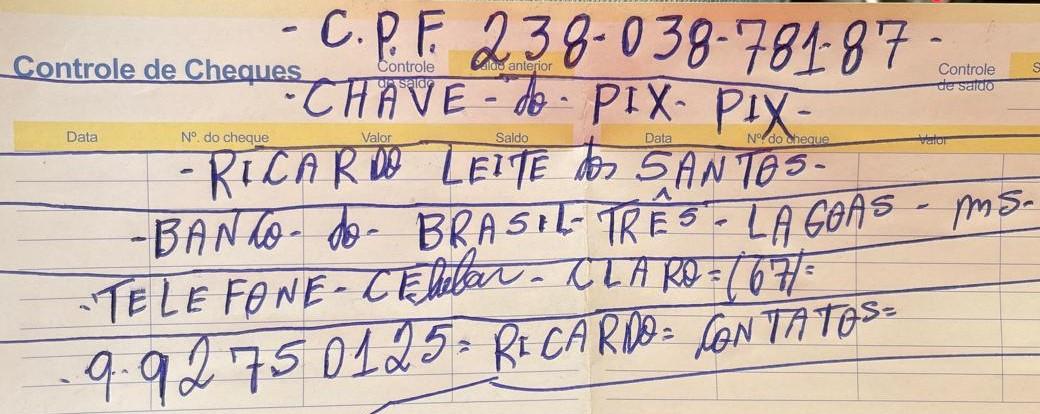 - C.P.F. 238-038-781-87 -
Controle de Cheques Controle de saldo Saldo anterior Controle de saldo S
- CHAVE - do - PIX - PIX -
Data Nº. do cheque Valor Saldo Data Nº. do cheque Valor
- RICARDO LEITE dos SANTOS -
- BANCO - do - BRASIL - TRÊS - LAGOAS - MS -
- TELEFONE - CElular - CLARO = (67) =
- 9.92750125 = RICARDO = CONTATOS =